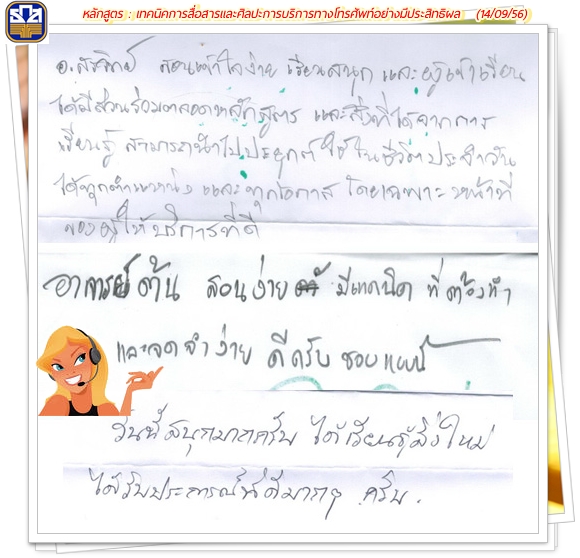 หลักสูตร : เทคนิคการสื่อสารและศิลปะการบริการทางโทรศัพท์อย่างมีประสิทธิผล (14/09/56)
อ. สอนเข้าใจง่าย เรียนสนุก และผู้เข้าเรียน
ได้มีส่วนร่วมตลอดหลักสูตร และสิ่งที่ได้จากการ
เรียนรู้ สามารถนำไปประยุกต์ใช้ในชีวิตประจำวัน
ได้ทุกตำแหน่ง และทุกโอกาส โดยเฉพาะหน้าที่
ของผู้ให้บริการที่ดี
อาจารย์ต้น สอนง่าย มีเทคนิค ที่ต้องทำ
และจดจำง่าย ดีครับ ชอบแบบนี้
วันนี้สนุกมากครับ ได้เรียนรู้สิ่งใหม่
ได้รับประการณ์ที่ดีมากๆ ครับ.